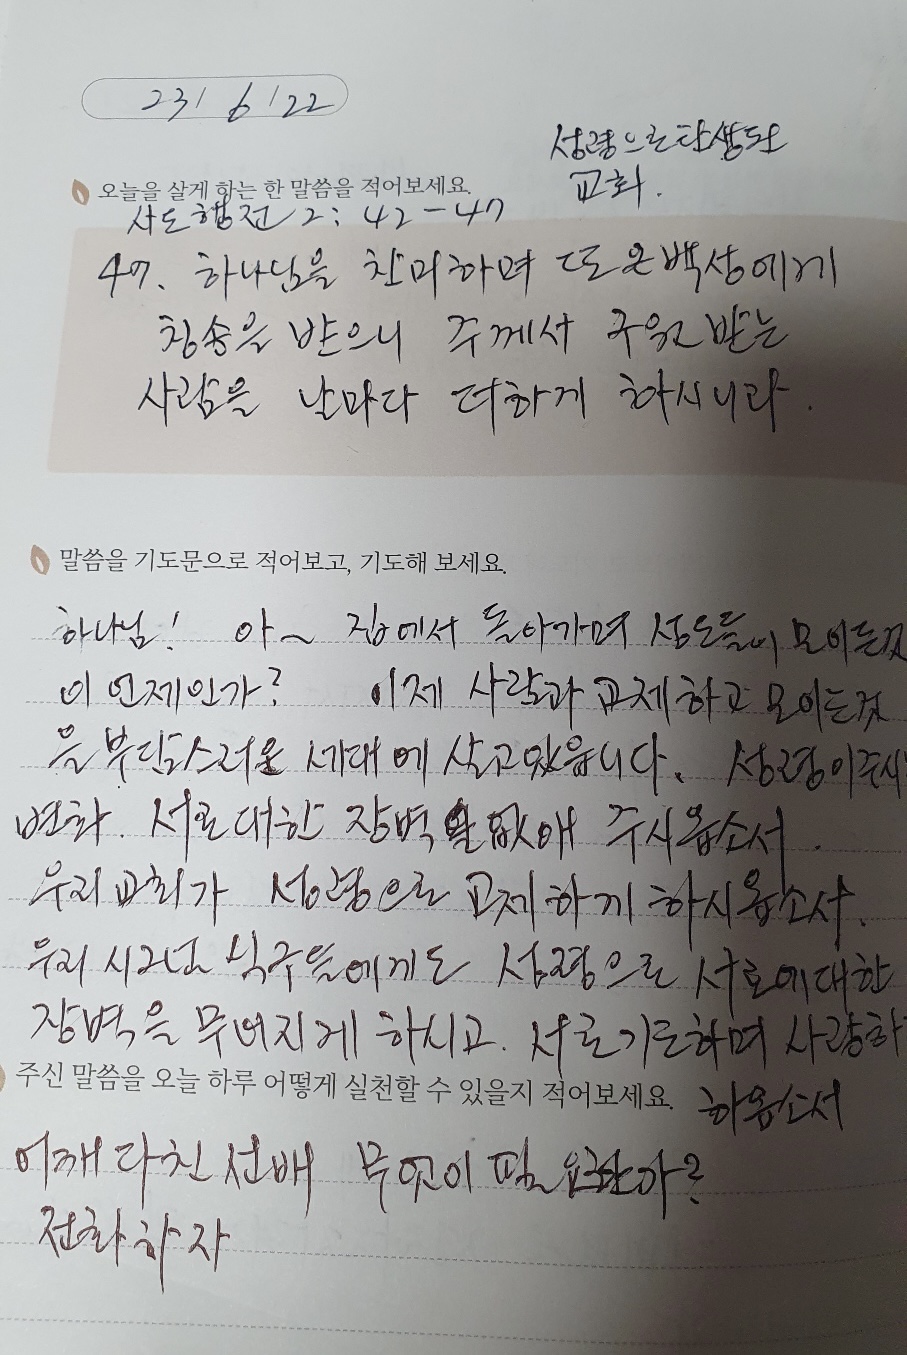 23/ 6/22
성령으로 탄생된
교회.
오늘을 살게 하는 한 말씀을 적어보세요.
사도행전 2: 42-47
47. 하나님을 찬미하며 또 온 백성에게
칭송을 받으니 주께서 구원 받는
사람을 날마다 더하게 하시니라.
말씀을 기도문으로 적어보고, 기도해 보세요.
하나님! 아~ 집에서 돌아가며 성도들이 모이든것
이 언제인가? 이제 사람과 교제하고 모이는것
을 부담스러운 세대에 살고있읍니다. 성령이주시
변화. 서로 대한 장벽 없애 주시옵소서.
우리교회가 성령으로 교제하게 하시옵소서.
우리 시그년 식구들에게도 성령으로 서로에대한
장벽을 무너지게 하시고. 서로기도하며 사랑하
하옵소서
주신 말씀을 오늘 하루 어떻게 실천할 수 있을지 적어보세요.
어깨 다친 선배 무엇이 필요한가?
전화하자